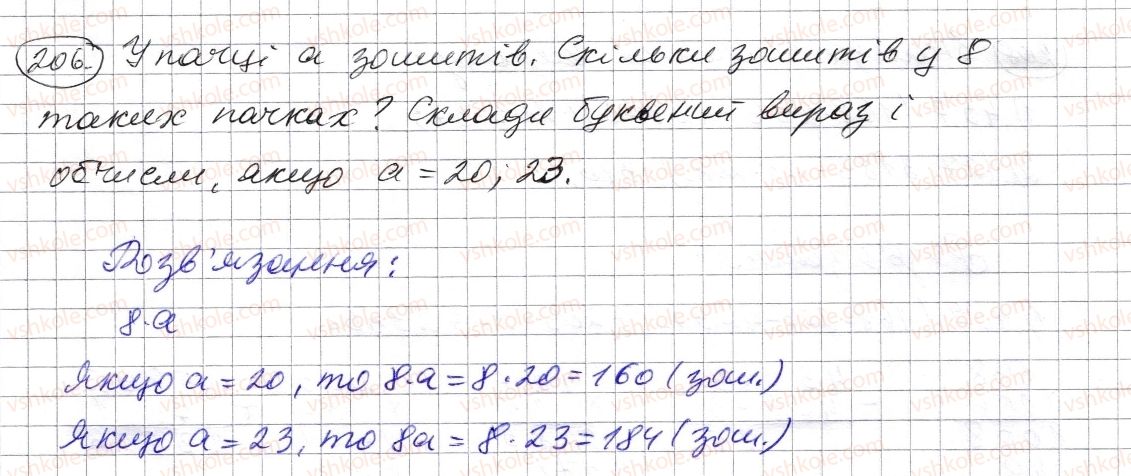 206. У пачці а зошитів. Скільки зошитів у 8
таких пачках? Склади буквений вираз і
обчисли, якщо а = 20; 23.
Розв'язання:
8·а
Якщо а = 20, то 8·а = 8·20 = 160 (зош.)
Якщо а = 23, то 8а = 8·23 = 184 (зош.)